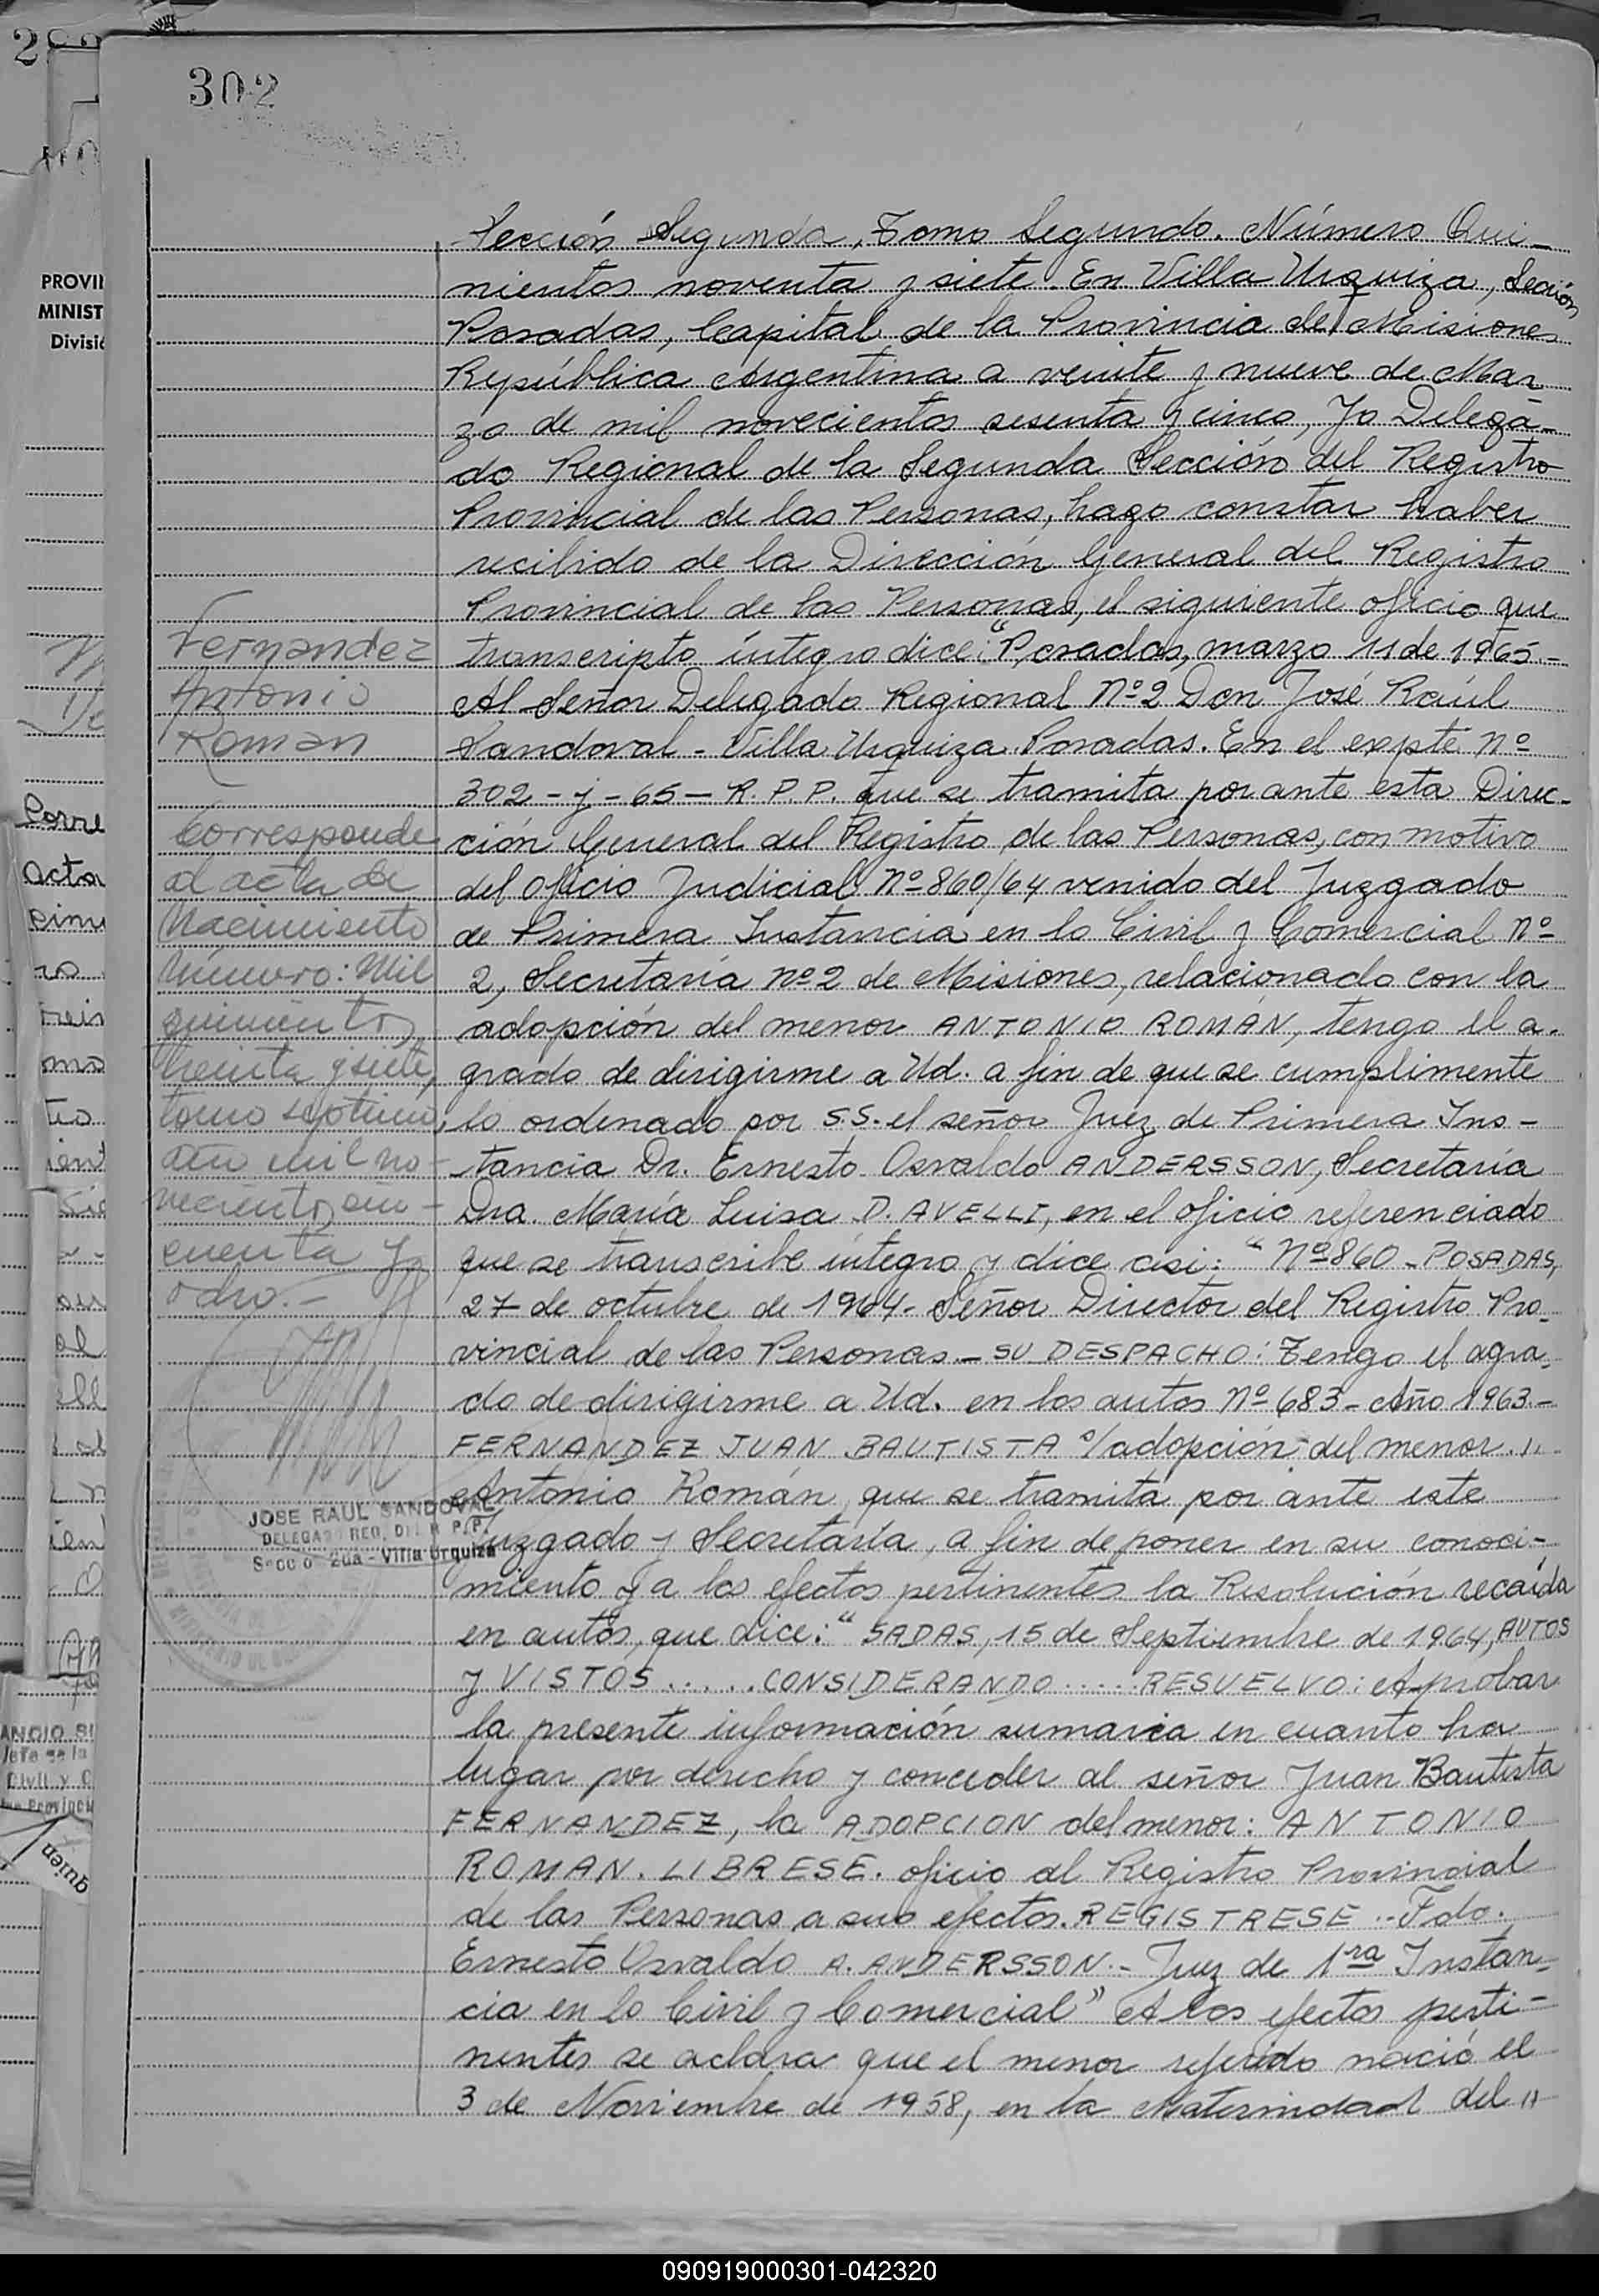 302
Sección Segunda, Tomo Segundo. Número Qui-
nientos noventa y siete. En Villa Urquiza, Sección
Posadas, Capital de la Provincia de Misiones
República Argentina a veinte y nueve de Mar
zo de mil novecientos sesenta y cinco, Yo Delega-
do Regional de la Segunda Sección del Registro
Provincial de las Personas, hago constar haber
recibido de la Dirección General del Registro
Provincial de las Personas, el siguiente oficio que
transcripto íntegro dice: "Posadas, marzo 11 de 1965.-
Al Señor Delegado Regional Nº 2 Don José Raúl
Sandoval - Villa Urquiza Posadas. En el expte nº
302 - j - 65 - R.P.P. que se tramita por ante esta Direc-
ción General del Registro de las Personas, con motivo
del oficio Judicial Nº 860/64 venido del Juzgado
de Primera Instancia en lo Civil y Comercial Nº
2, Secretaría nº 2 de Misiones, relacionado con la
adopción del menor ANTONIO ROMAN, tengo el a-
grado de dirigirme a Ud. a fin de que se cumplimente
lo ordenado por S.S. el señor Juez de Primera Ins-
tancia Dr. Ernesto Osvaldo ANDERSSON, Secretaría
Dra. María Luisa D. AVELLI, en el oficio referenciado
que se transcribe íntegro y dice asi: "Nº 860 - POSADAS,
27 de octubre de 1964. Señor Director del Registro Pro-
vincial de las Personas - SU DESPACHO: Tengo el agra-
do de dirigirme a Ud. en los autos Nº 683 - Año 1963.-
FERNANDEZ JUAN BAUTISTA s/adopción del menor
Antonio Román, que se tramita por ante este
Juzgado y Secretaría, a fin de poner en su conoci-
miento y a los efectos pertinentes la Resolución recaída
en autos, que dice: "SADAS, 15 de Septiembre de 1964, AUTOS
y VISTOS ..... CONSIDERANDO ..... RESUELVO: Aprobar
la presente información sumaria en cuanto ha
lugar por derecho y conceder al señor Juan Bautista
FERNANDEZ, la ADOPCION del menor: ANTONIO
ROMAN. LIBRESE. oficio al Registro Provincial
de las Personas a sus efectos. REGISTRESE .- Fdo.
Ernesto Osvaldo A. ANDERSSON.- Juez de 1ra Instan-
cia en lo Civil y Comercial" A los efectos perti-
nentes se aclara que el menor referido nació el
3 de Noviembre de 1958, en la Maternidad del
Fernandez
Antonio
Roman
Corresponde
al acta de
Nacimiento
Número: Mil
quinientos
treinta y siete,
tomo septimo,
año mil no-
vecientos cin-
cuenta y
ocho.-
JOSE RAUL SANDOVAL
DELEGADO REG. DEL R.P.P.
Sección 2da - Villa Urquiza
PROVIN
MINIST
Divisió
Corre
acta
quien
090919000301-042320